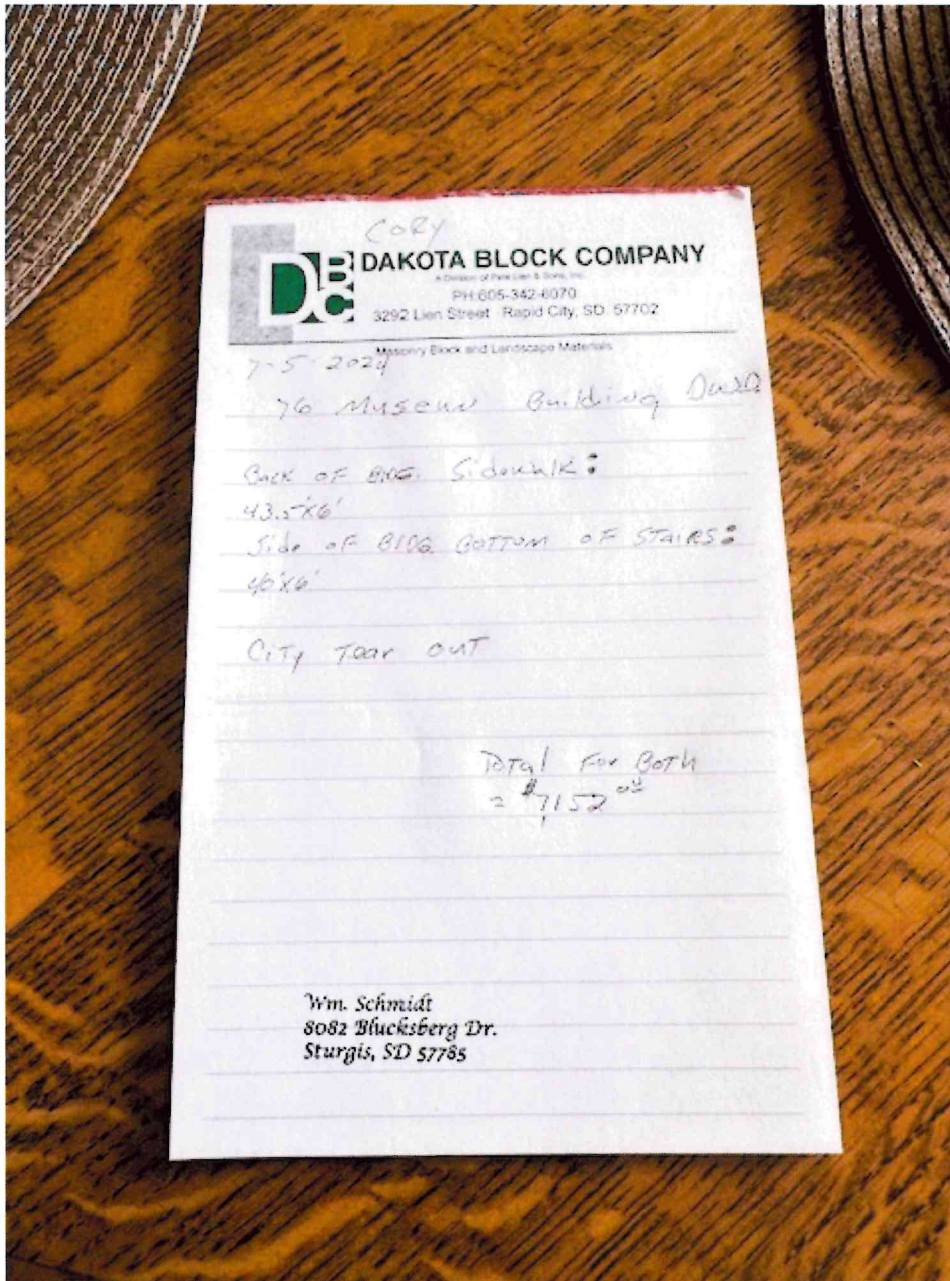 CORY
DBC DAKOTA BLOCK COMPANY
A Division of Pete Lien & Sons, Inc.
PH:605-342-6070
3292 Lien Street Rapid City, SD 57702
Masonry Block and Landscape Materials
7-5-2024
76 Museum Building
Back of BlDG. Sidewalk:
43.5'x6'
Side of BlDG BOTTOM OF STAIRS:
40'x6'
CiTy Tear ouT
Total For Both
= $7152 00
Wm. Schmidt
8082 Blucksberg Dr.
Sturgis, SD 57785